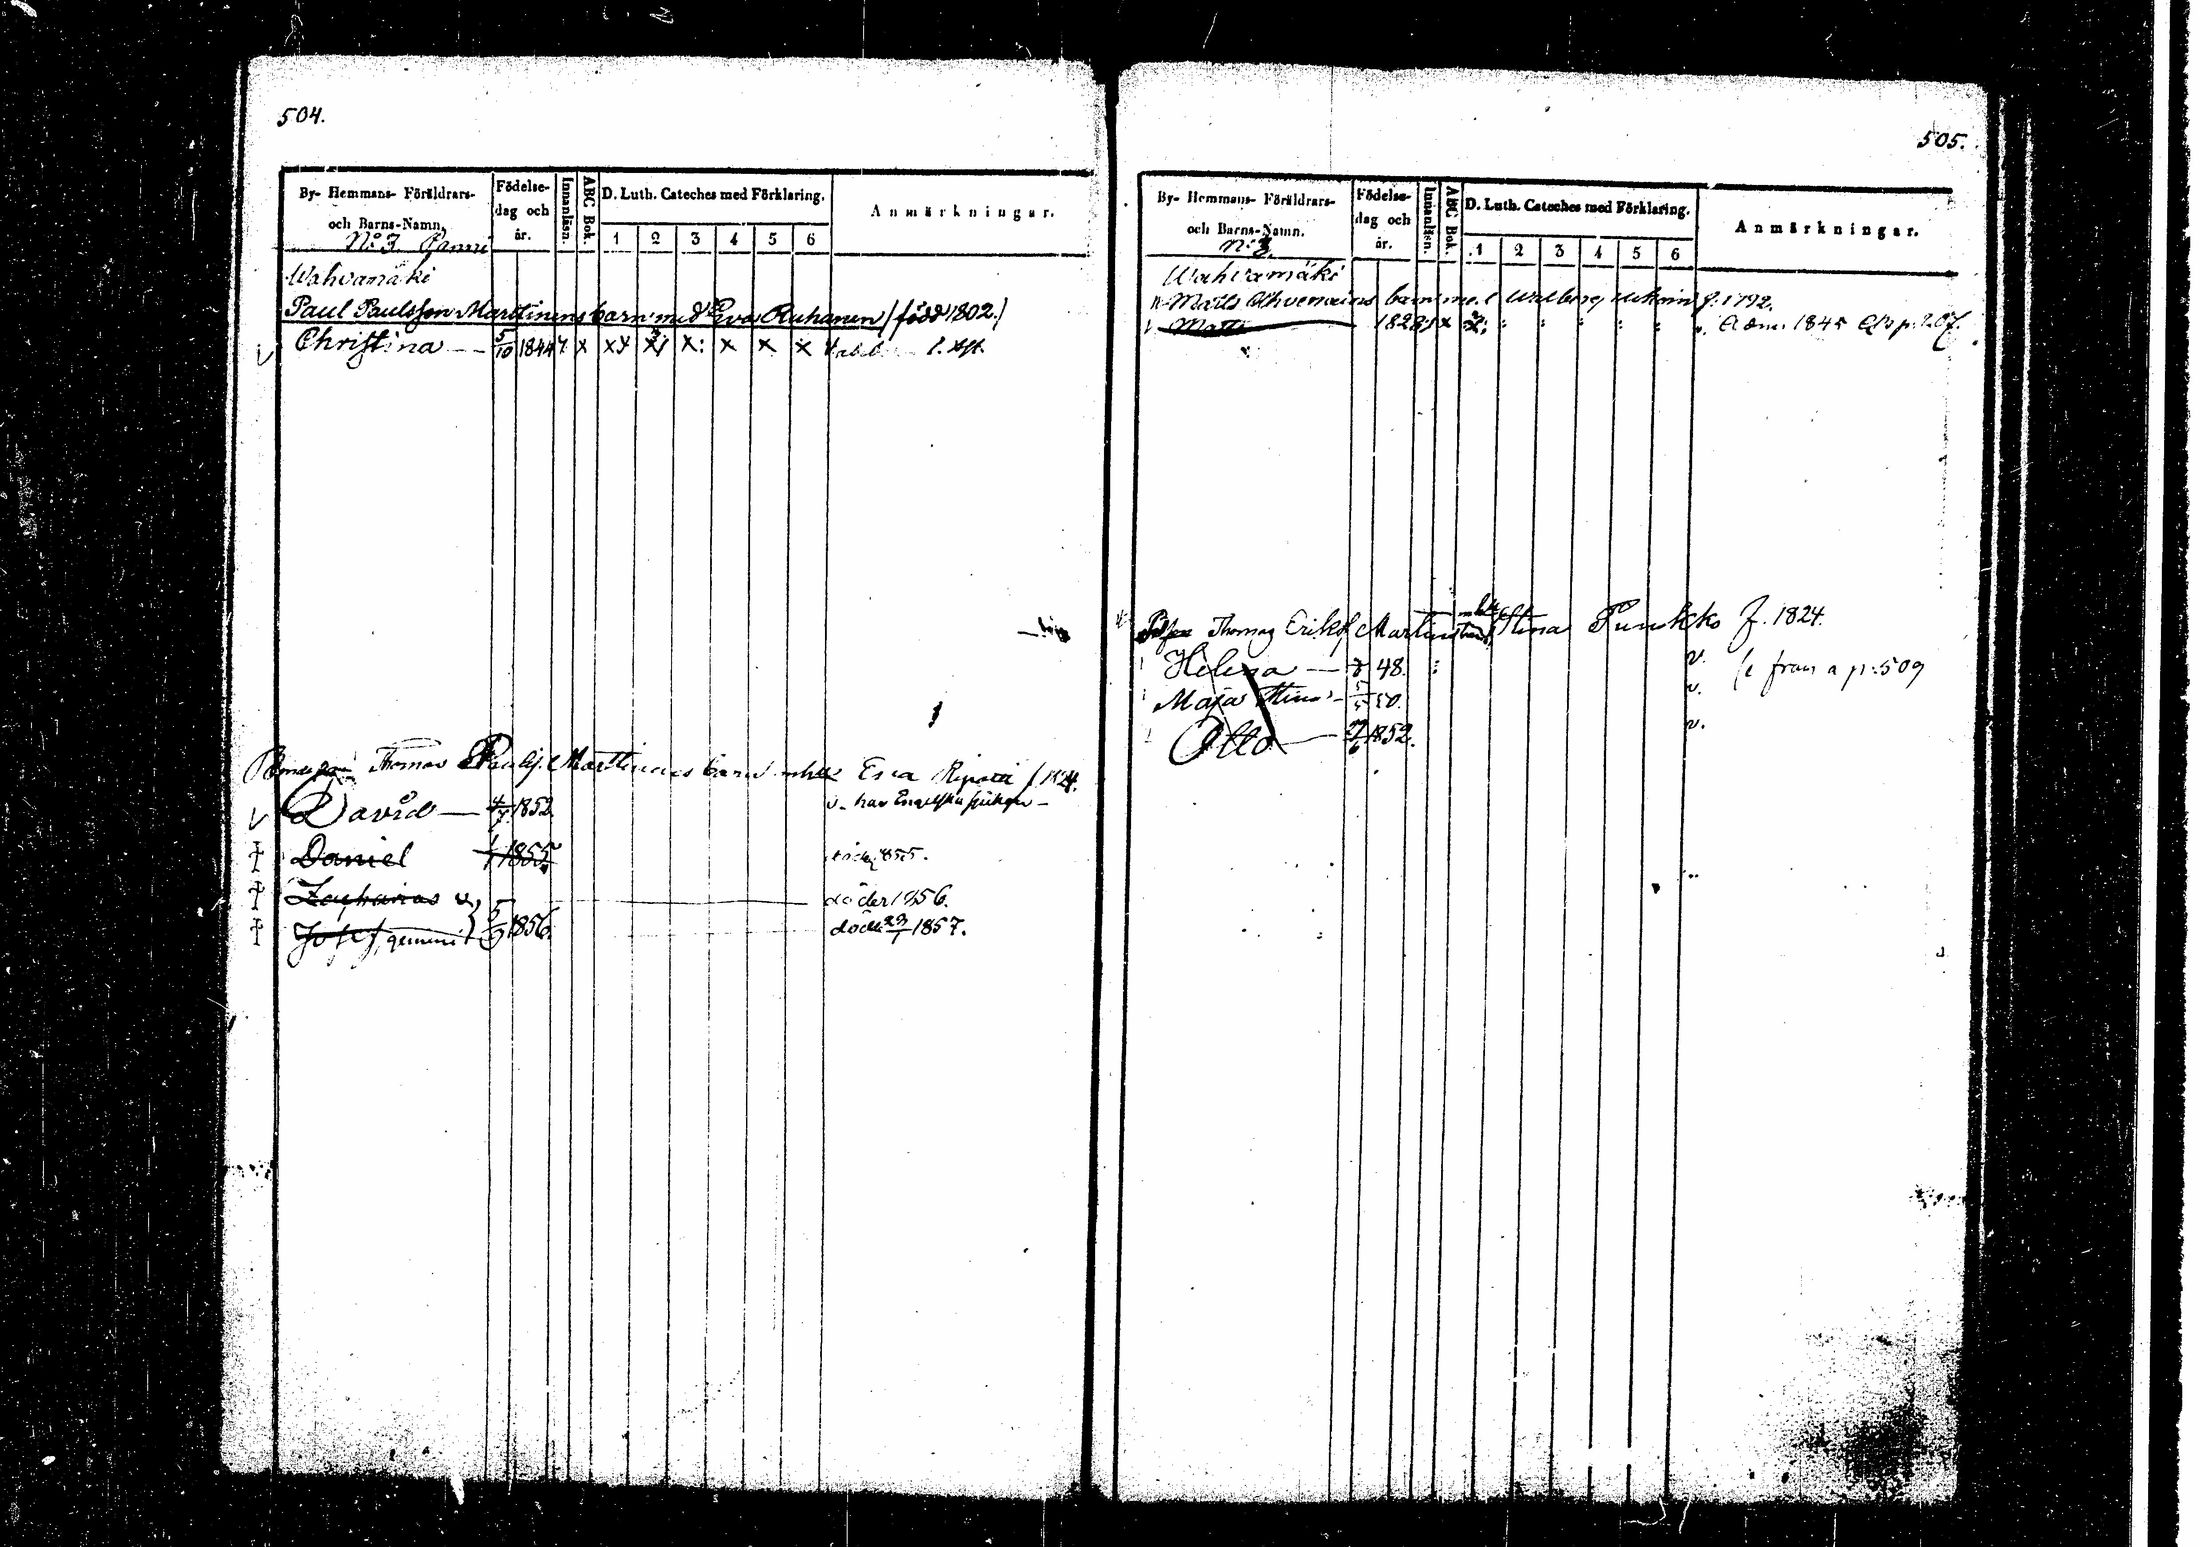 504.
By- Hemmans- Föräldrars- och Barns-Namn.
Födelse- dag och år.
Innanläsn.
ABC Bok.
D. Luth. Cateches med Förklaring.
1 2 3 4 5 6
Anmärkningar.
No 3
Wahvamäki
Paul Paulsson Marttinens barn med Eva Ruhanen / född 1802. /
Christina — 5/10 1844 x x x x x x
Thomas Paulss. Marttinens barn Eva f 1824.
David — 4/7 1852. v. har Engelska sjukan —
Daniel 1855 död 1855.
Zacharias v.
döder 1856.
Josef, gemini } 5/9 1856. död 29/1 1857.
505.
By- Hemmans- Föräldrars- och Barns-Namn.
Födelse- dag och år.
Innanläsn.
ABC Bok.
D. Luth. Cateches med Förklaring.
1 2 3 4 5 6
Anmärkningar.
No 3.
Wahvamäki
Matts barn med Walborg f. 1792.
Matts 1828 x Adm. 1845 p. 207.
Thomas Eriks. Stina Punkko f. 1824.
Helena — 48. : v. se fram a p: 509
Maja Stina — 5/5 50. v.
Otto — 1852. v.